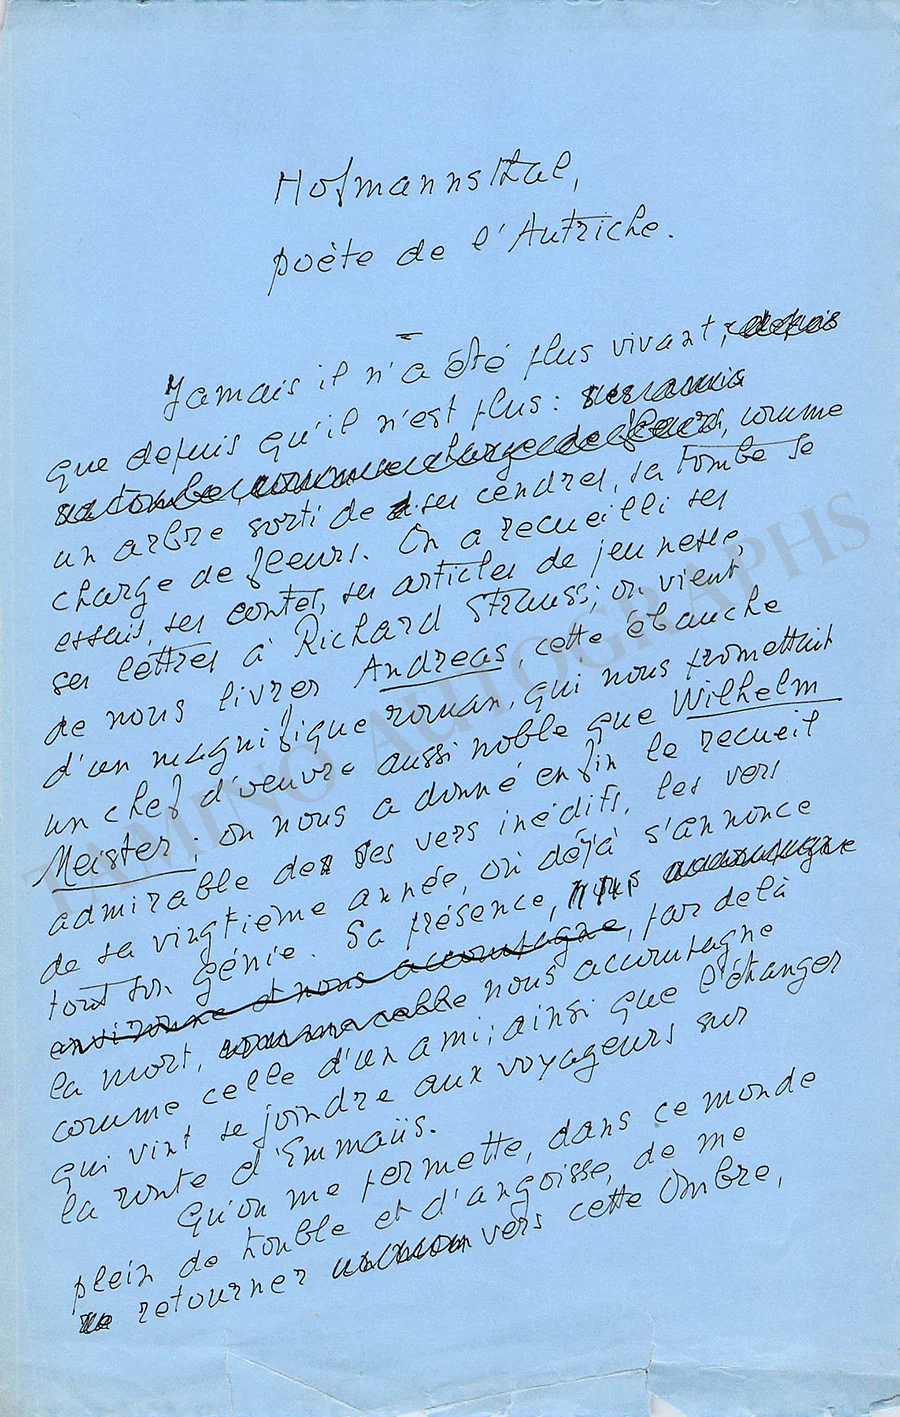 Hofmannsthal,
poète de l'Autriche.
Jamais il n'a été plus vivant, depuis
que depuis qu'il n'est plus :
sa tombe, comme charge de fleurs, comme
un arbre sorti de ses cendres, sa tombe se
charge de fleurs. On a recueilli ses
essais, ses contes, ses articles de jeunesse,
ses lettres à Richard Strauss; on vient
de nous livrer Andreas, cette ébauche
d'un magnifique roman, qui nous promettait
un chef d'oeuvre aussi noble que Wilhelm
Meister; on nous a donné enfin le recueil
admirable de ses vers inédits, les vers
de sa vingtième année, où déjà s'annonce
tout son génie. Sa présence, nous accompagne
environne et nous accompagne, par delà
la mort, nous accompagne
comme celle d'un ami; ainsi que l'étranger
qui vint se joindre aux voyageurs sur
la route d'Emmaüs.
Qu'on me permette, dans ce monde
plein de trouble et d'angoisse, de me
retourner vers cette Ombre,
TAMINO AUTOGRAPHS